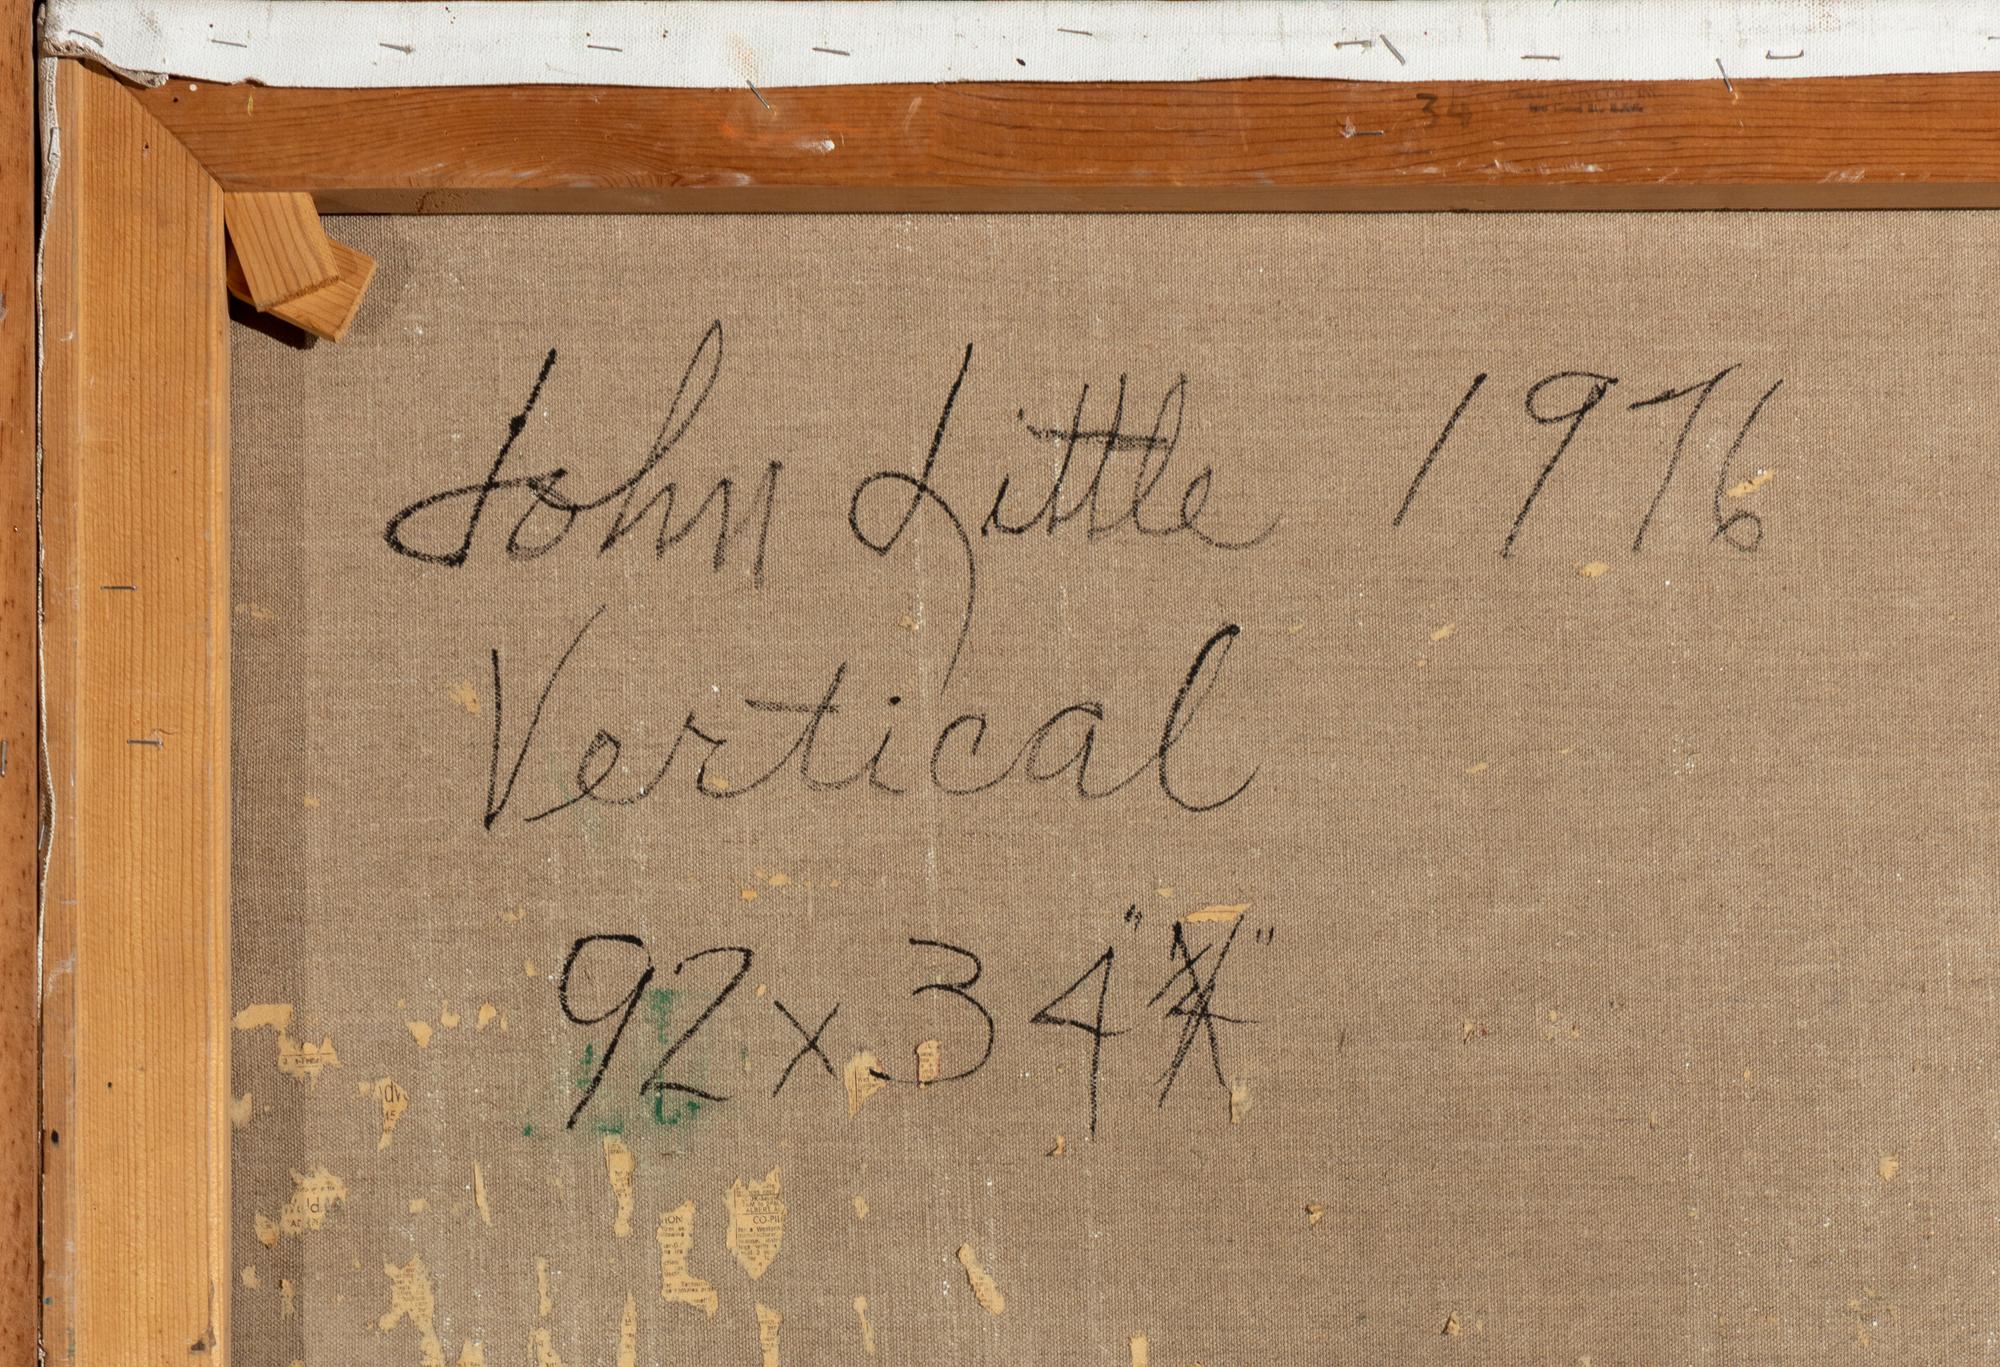 34
John Little 1976
Vertical
92 x 34" "
CO-PIL